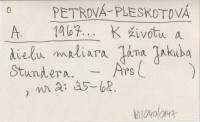 0 PETROVÁ-PLESKOTOVÁ
A. 1967... K životu a
dielu maliara Jána Jakuba
Stundera. - Ars (       )
, nr 2: 35-68.